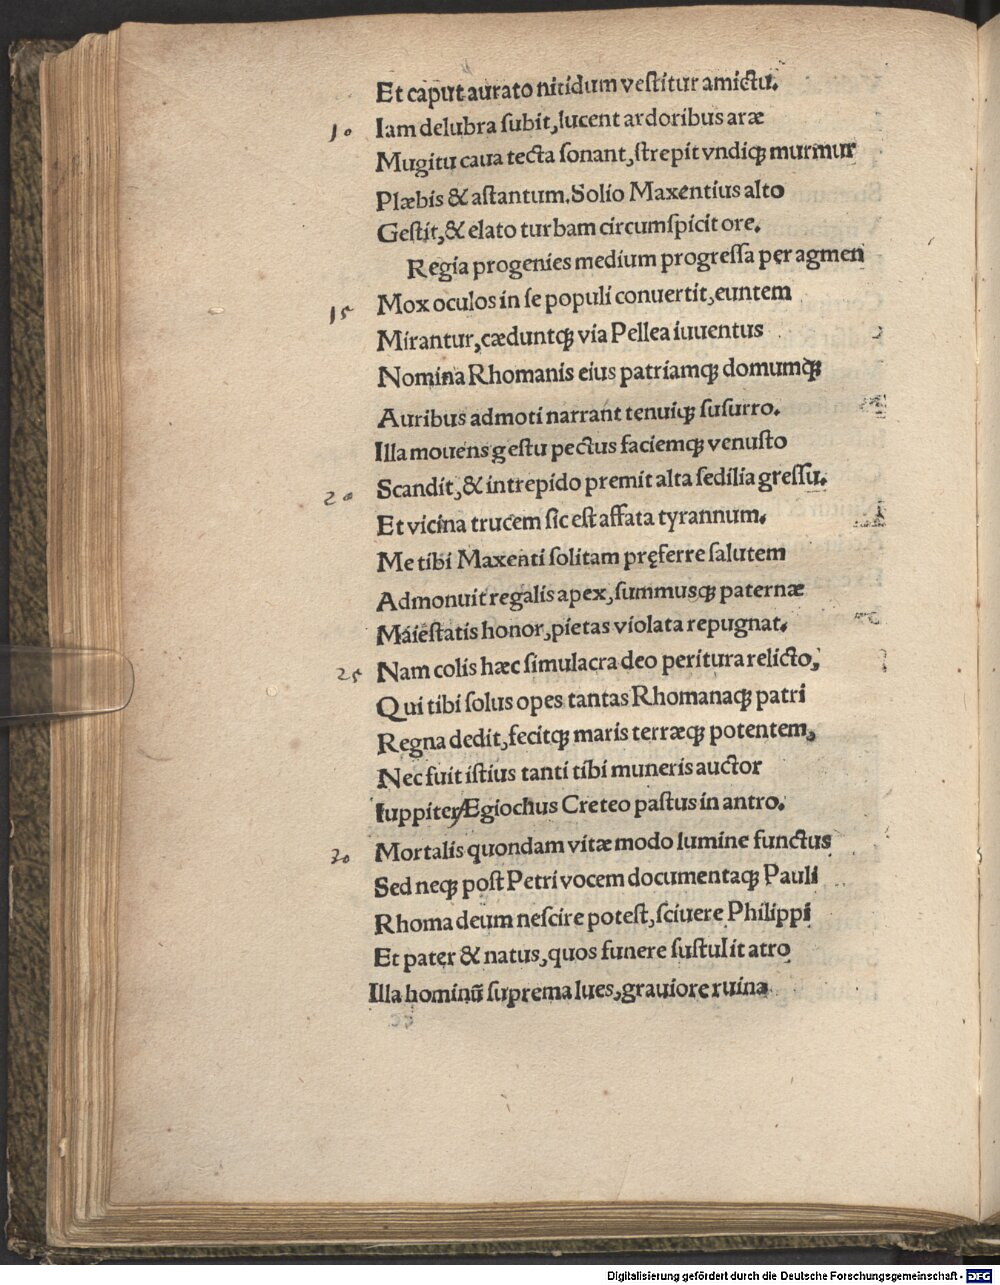 Et caput aurato nitidum veſtitur amictu.
10 Iam delubra ſubit, lucent ardoribus aræ
Mugitu caua tecta ſonant, ſtrepit vndiqꝫ murmur
Plæbis & aſtantum. Solio Maxentius alto
Geſtit, & elato turbam circumſpicit ore.
Regia progenies medium progreſſa per agmen
15 Mox oculos in ſe populi conuertit, euntem
Mirantur, cæduntqꝫ via Pellea iuuentus
Nomina Rhomanis eius patriamqꝫ domumqꝫ
Auribus admoti narrant tenuiqꝫ ſuſurro.
Illa mouens geſtu pectus faciemqꝫ venuſto
20 Scandit, & intrepido premit alta ſedilia greſſu.
Et vicina trucem ſic eſt affata tyrannum.
Me tibi Maxenti ſolitam pręferre ſalutem
Admonuit regalis apex, ſummusqꝫ paternæ
Maieſtatis honor, pietas violata repugnat.
25 Nam colis hæc ſimulacra deo peritura relicto,
Qui tibi ſolus opes tantas Rhomanaqꝫ patri
Regna dedit, fecitqꝫ maris terræqꝫ potentem,
Nec fuit iſtius tanti tibi muneris auctor
Iuppiter Ægiochus Creteo paſtus in antro.
30 Mortalis quondam vitæ modo lumine functus
Sed neqꝫ poſt Petri vocem documentaqꝫ Pauli
Rhoma deum neſcire poteſt, ſciuere Philippi
Et pater & natus, quos funere ſuſtulit atro
Illa hominū ſuprema lues, grauiore ruina
Digitalisierung gefördert durch die Deutsche Forschungsgemeinschaft - DFG